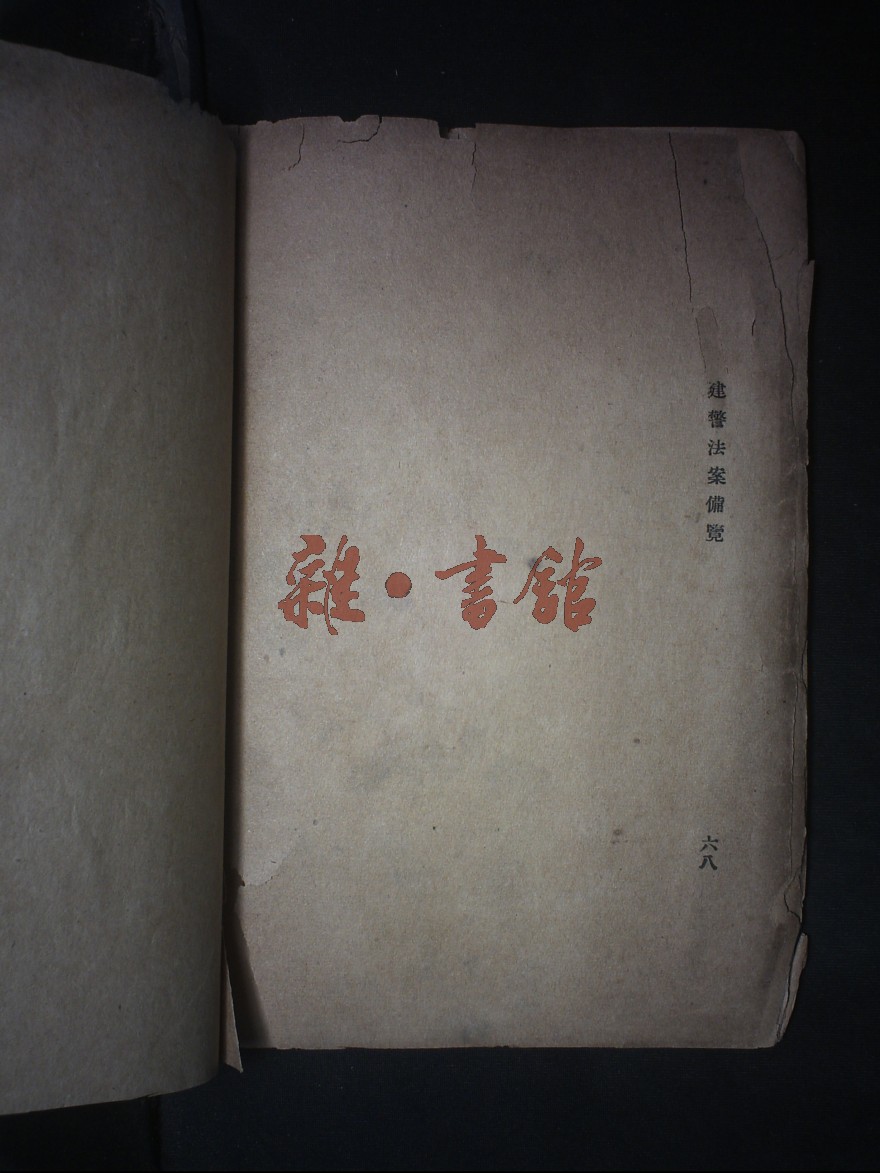 建警法案備覽
六八
雜·書館